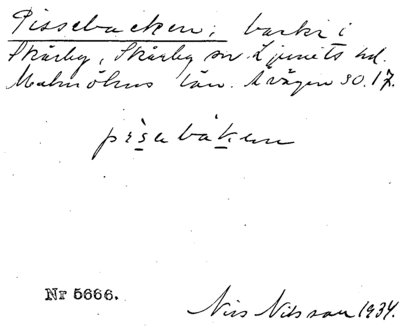 Pissebacken; backe i
Skårby, Skårby sn. Ljunits hd.
Malmöhus län. Avägen 30.17.
pìsebákeꞃ
Nr 5666.
Nils Nilsson 1934.